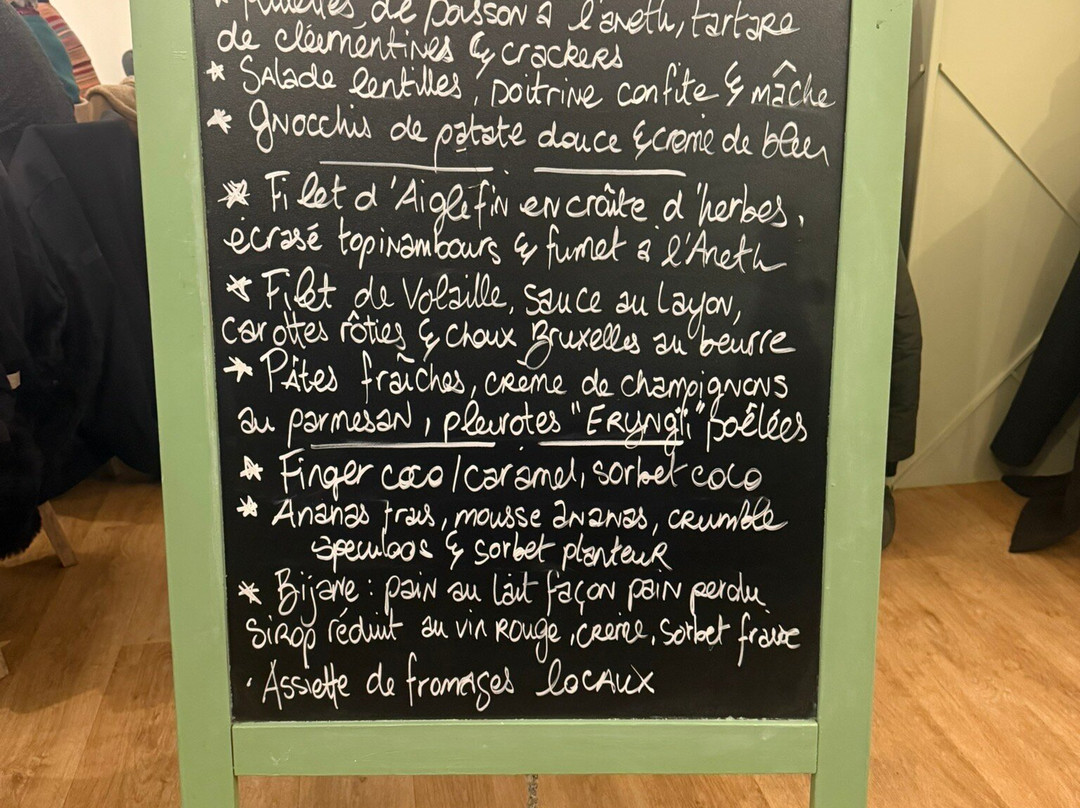 * Rillettes de poisson à l'aneth, tartare
de clémentines & crackers
* Salade lentilles, poitrine confite & mâche
* Gnocchis de patate douce & crème de bleu
* Filet d'Aiglefin en croûte d'herbes,
écrasé topinambours & fumet à l'Aneth
* Filet de Volaille, sauce au Layon,
carottes rôties & choux Bruxelles au beurre
* Pâtes fraîches, crème de champignons
au parmesan, pleurotes "ERYNGII" poêlées
* Finger coco/caramel, sorbet coco
* Ananas frais, mousse ananas, crumble
speculoos & sorbet planteur
* Bijane : pain au lait façon pain perdu
sirop réduit au vin rouge, crème, sorbet fraise
· Assiette de fromages locaux